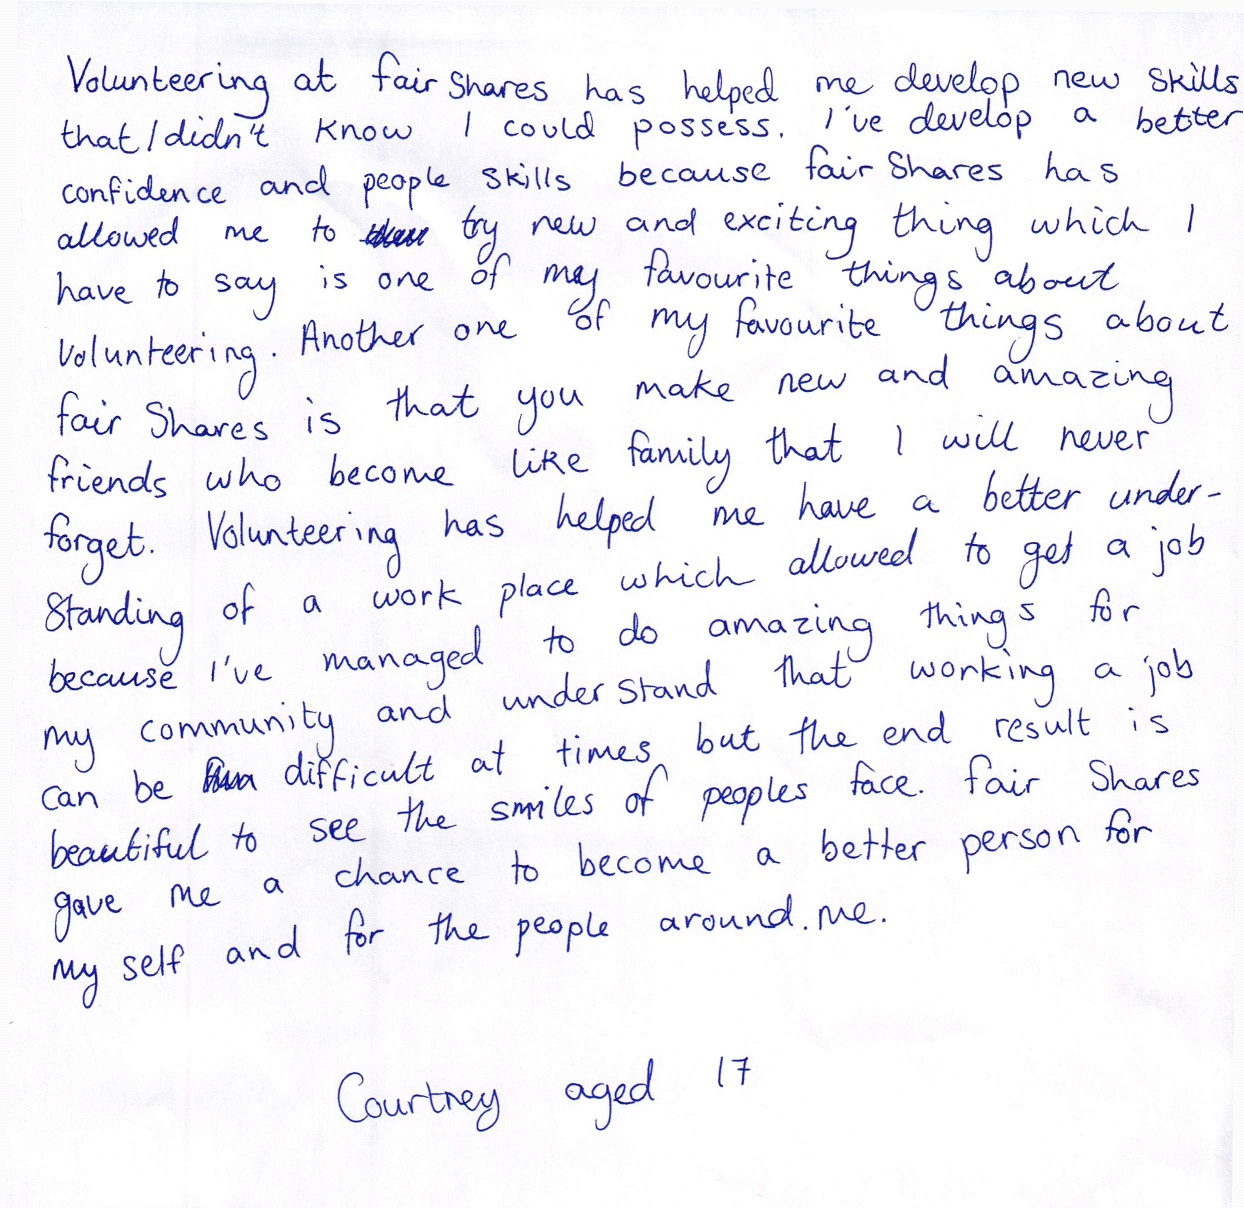 Volunteering at fair Shares has helped me develop new skills
that I didn't know I could possess. I've develop a better
confidence and people skills because fair Shares has
allowed me to try new and exciting thing which I
have to say is one of my favourite things about
Volunteering. Another one of my favourite things about
fair Shares is that you make new and amazing
friends who become like family that I will never
forget. Volunteering has helped me have a better under-
Standing of a work place which allowed to get a job
because I've managed to do amazing things for
my community and understand that working a job
can be difficult at times but the end result is
beautiful to see the smiles of peoples face. fair Shares
gave me a chance to become a better person for
my self and for the people around.me.
Courtney aged 17